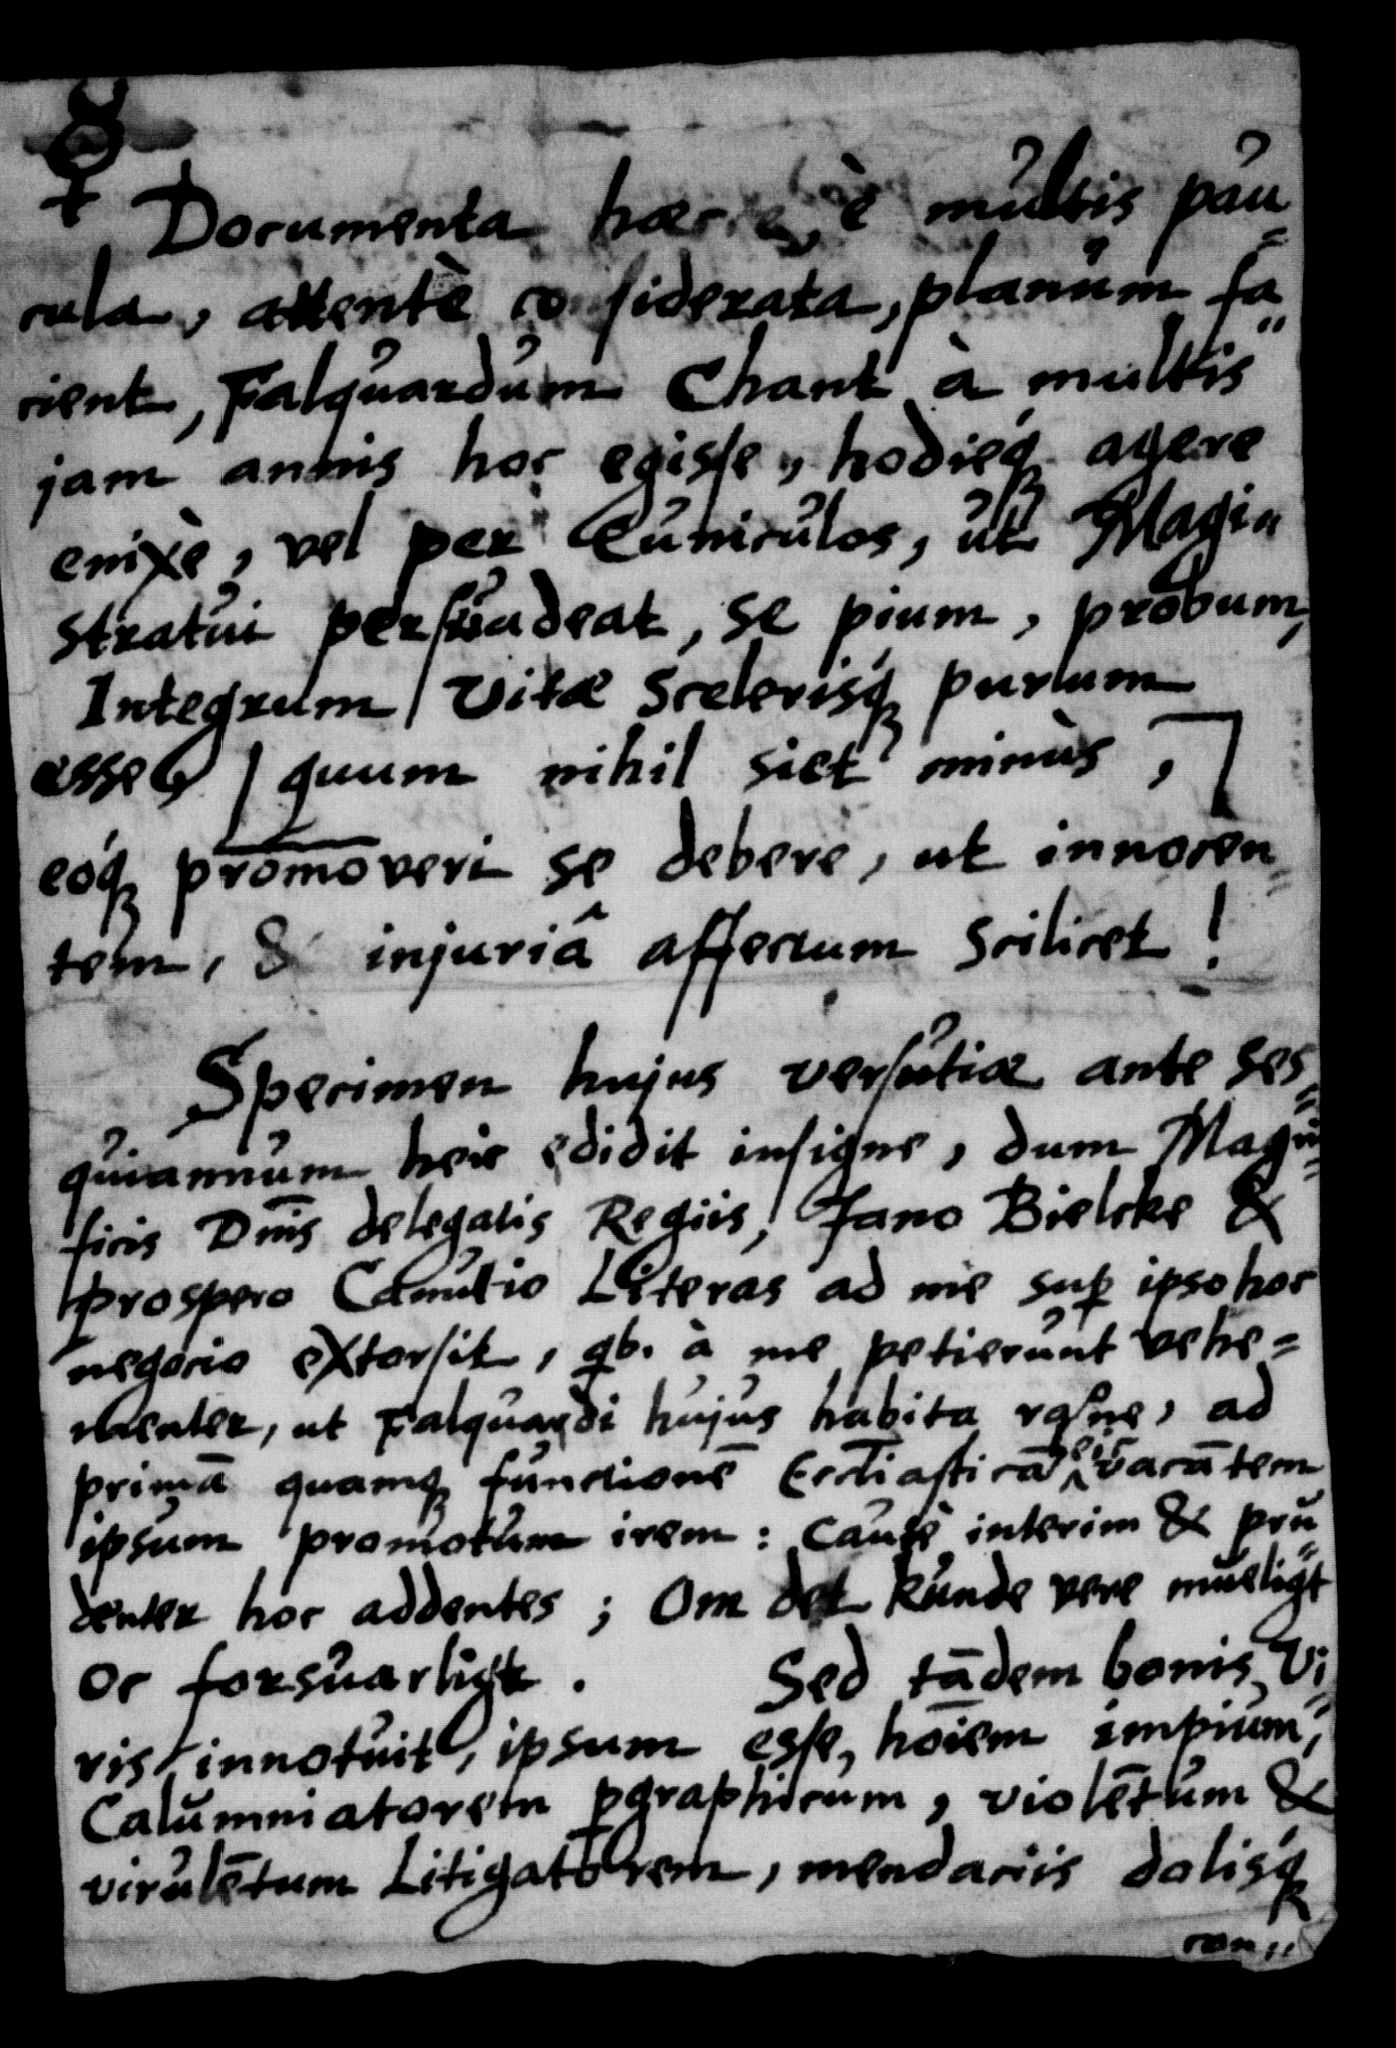 ☿ Documenta hæcce, è multis pau=
cula, attentè considerata, planum fa=
cient, Falquardum Chant à multis
jam annis hoc egisse, hodieq agere
enixè, vel per Cuniculos, ut Magi=
stratui persuadeat, se pium, probum,
Integrum / Vitæ scelerisq purum
esse / quum nihil siet minùs,
eóq promoveri se debere, ut innocen=
tem, & injuriâ affectum scilicet!
Specimen hujus versutiæ ante ses=
quiannum heic edidit insigne, dum Magni=
ficis Dnīs delegatis Regiis, Jano Bielcke &
Prospero Canutio Literas ad me sup ipso hoc
negocio extorsit, qb. à me petierunt vehe=
menter, ut Falquardi hujus habita rōne, ad
primā quamq functionē Ecclīasticā vacātem
ipsum promotum irem: cautè interim & pru=
denter hoc addentes; Om det kunde vere mueligt
oc forsuarligt. Sed tādem bonis Vi=
ris innotuit, ipsum esse, hōīem impium,
Calumniatorem pgraphicum, violētum &
virulētum Litigatorem, mendaciis dolisq
con=